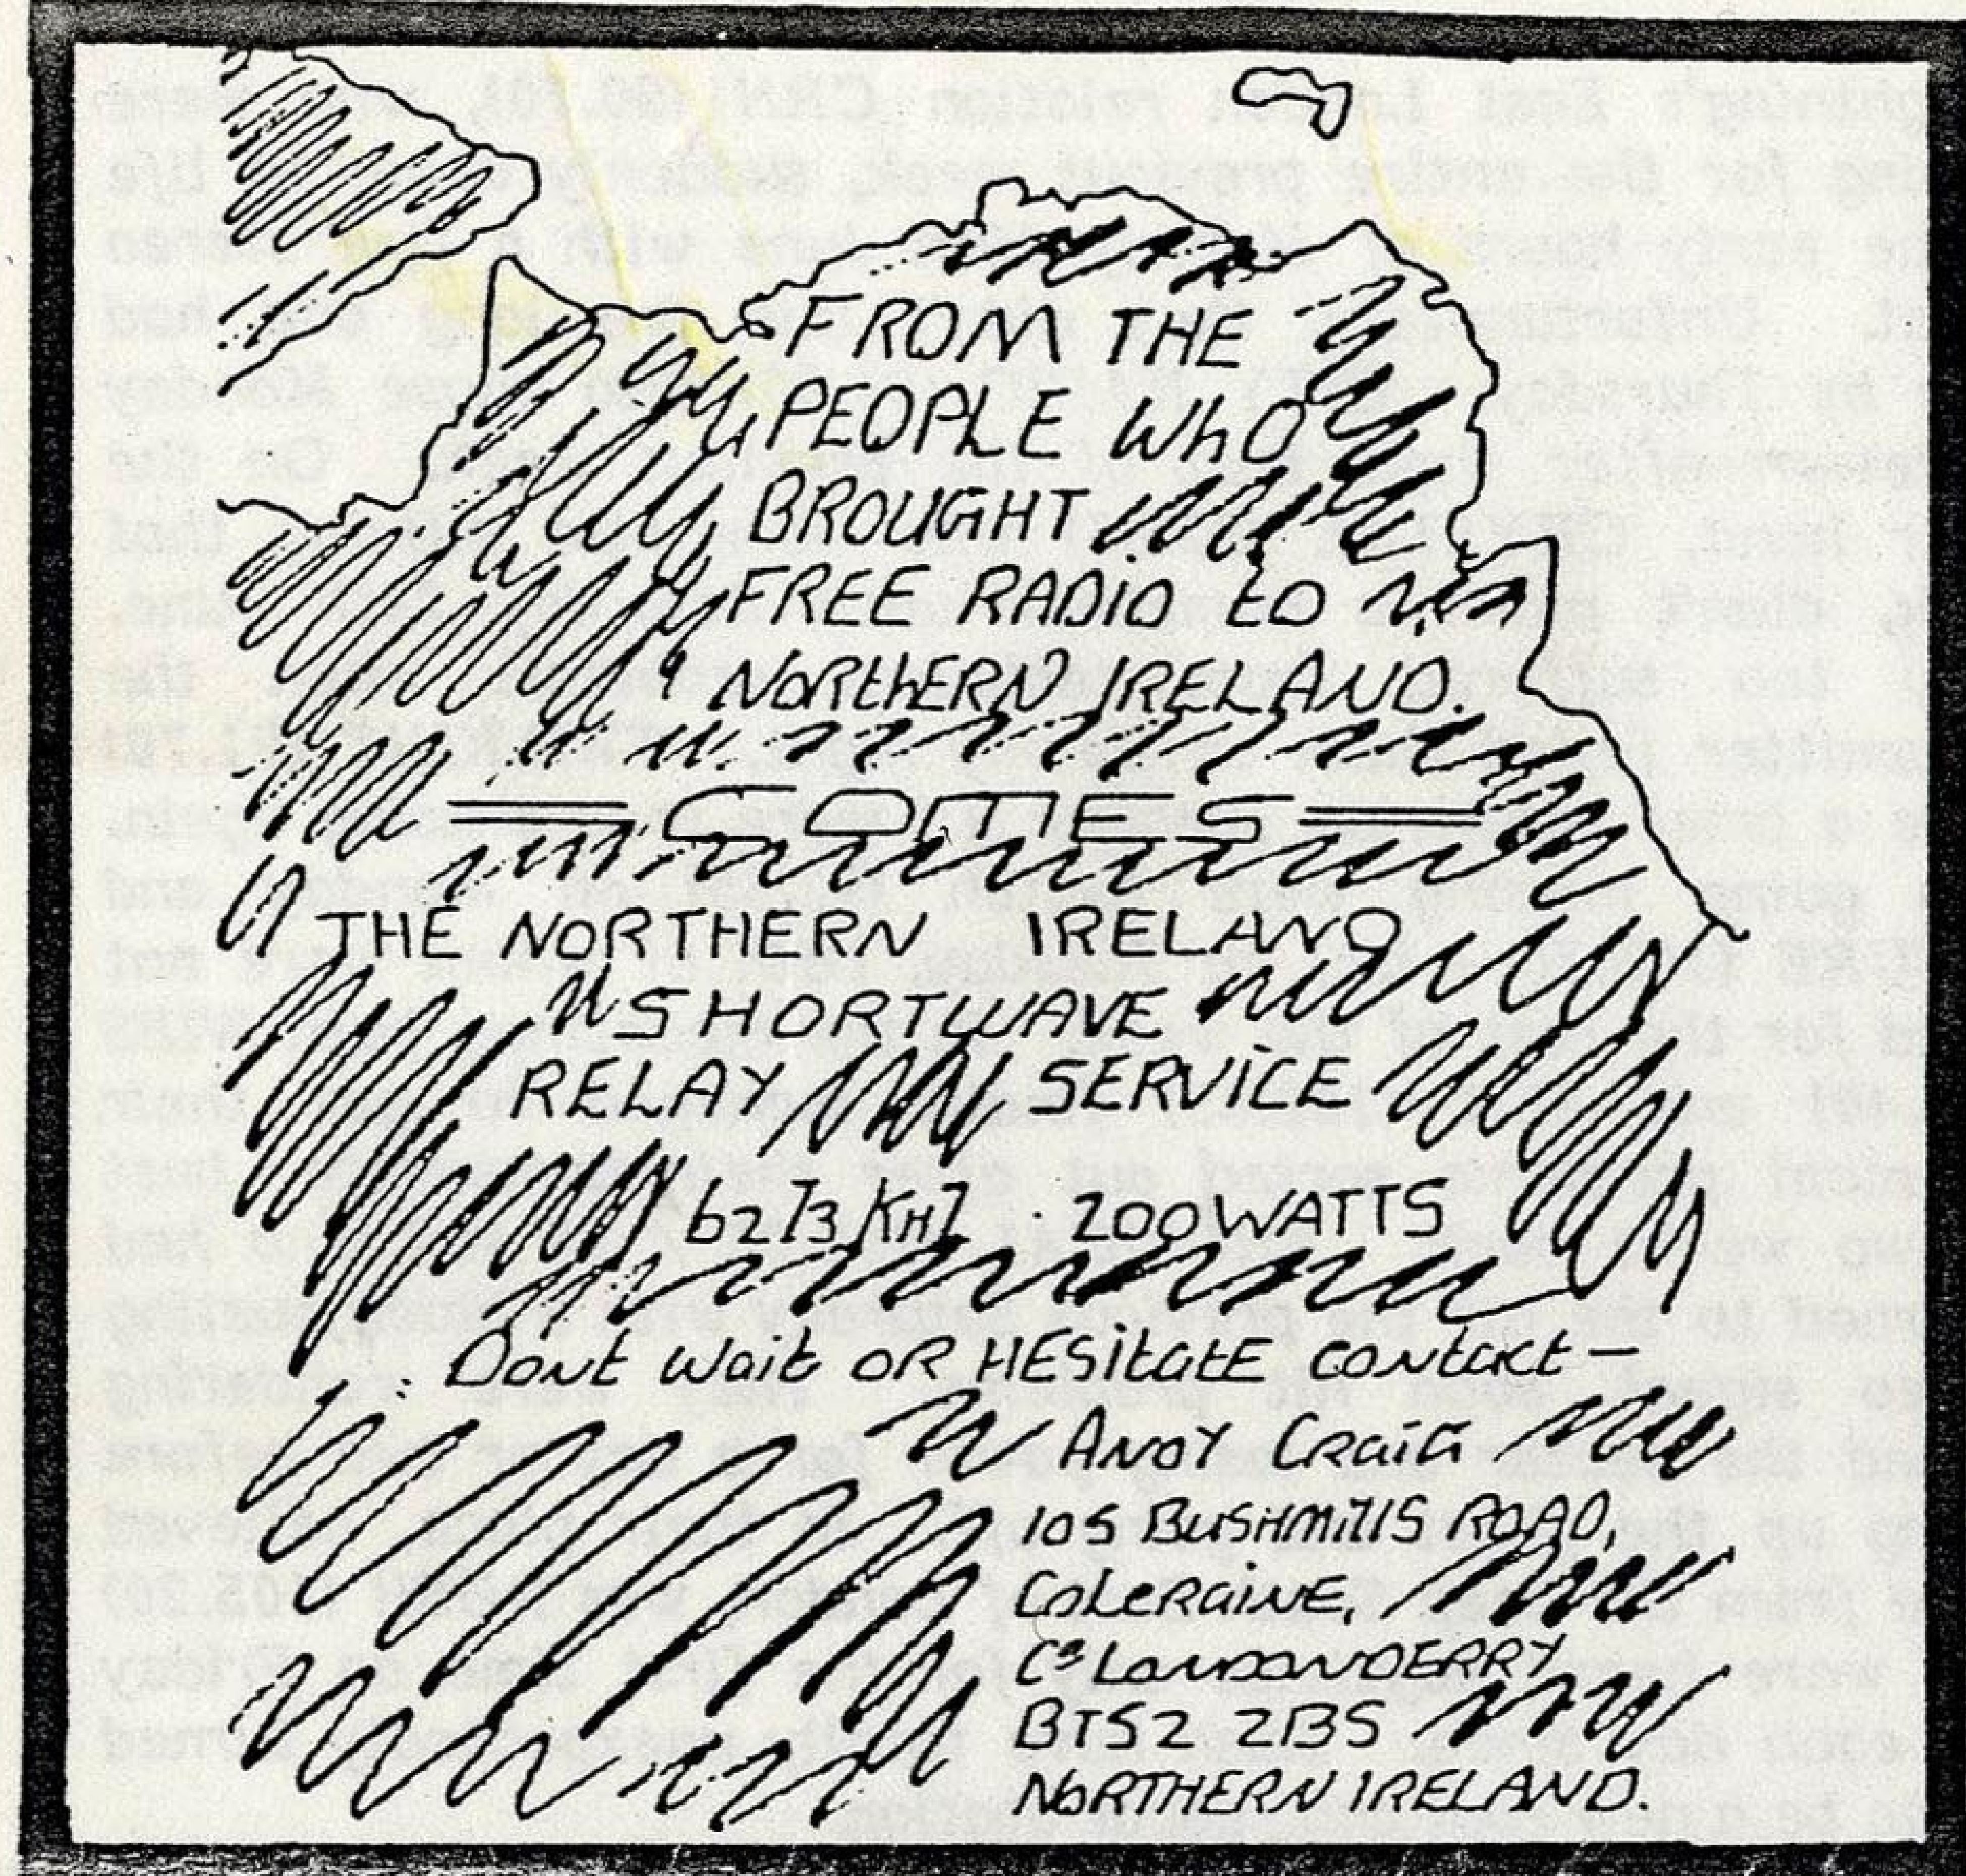 FROM THE
PEOPLE WhO
BROUGHT
FREE RADiO to
NORthERN IRELAND.
COMES
THE NORTHERN IRELAND
SHORTWAVE
RELAY SERViCE
6273 KHZ . 200 WATTS
Dont wait OR HESitatE contact -
ANDY CRaiG
105 BuSHMillS ROAD,
COLeRaiNE,
Co LONDONDERRY
BT52 2BS
NORTHERN IRELAND.